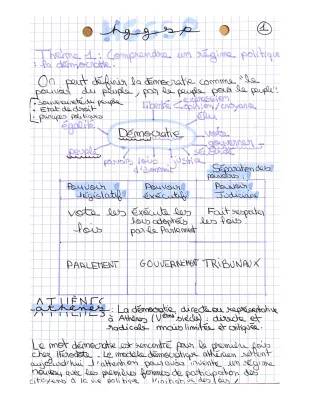 hggsp
1
Thème 1 : Comprendre un régime politique
: la démocratie.
On peut définir la démocratie comme "le
pouvoir du peuple, par le peuple, pour le peuple"
souveraineté du peuple
+ État de droit
principes politiques
liberté expression
opinion/citoyenne
élu
égalité
Démocratie
vote
gouverner
peuple
pouvoirs
justice
Séparation des
pouvoirs
Pouvoir législatif
Pouvoir exécutif
Pouvoir Judiciaire
vote les lois
Exécute les lois adoptées par le Parlement
Fait respecter les lois
PARLEMENT
GOUVERNEMENT
TRIBUNAUX
ATHÈNES
: La démocratie, directe ou représentative
à Athènes (Vème siècle) : directe et
radicale mais limitée et critiquée.
Le mot démocratie est rencontré pour la première fois
chez Hérodote. Le modèle démocratique athénien retient
aujourd'hui l'attention pour avoir inventé un régime
nouveau avec les premières formes de participation des
citoyens à la vie politique